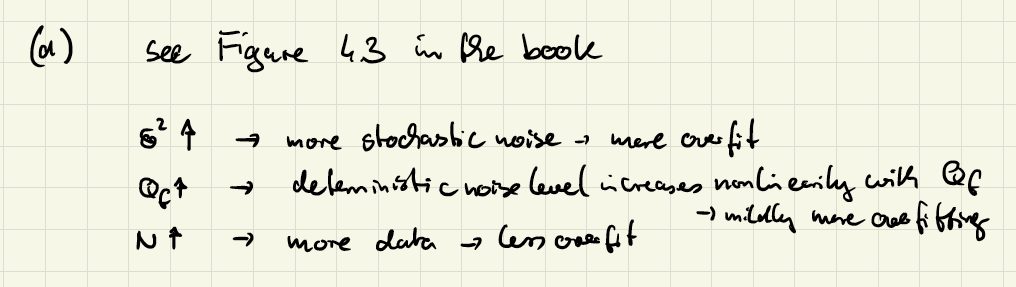 (d) see Figure 4.3 in the book
σ² ↑ → more stochastic noise → more overfit
Q_f ↑ → deterministic noise level increases nonlinearily with Q_f
→ mildly more overfitting
N ↑ → more data → less overfit